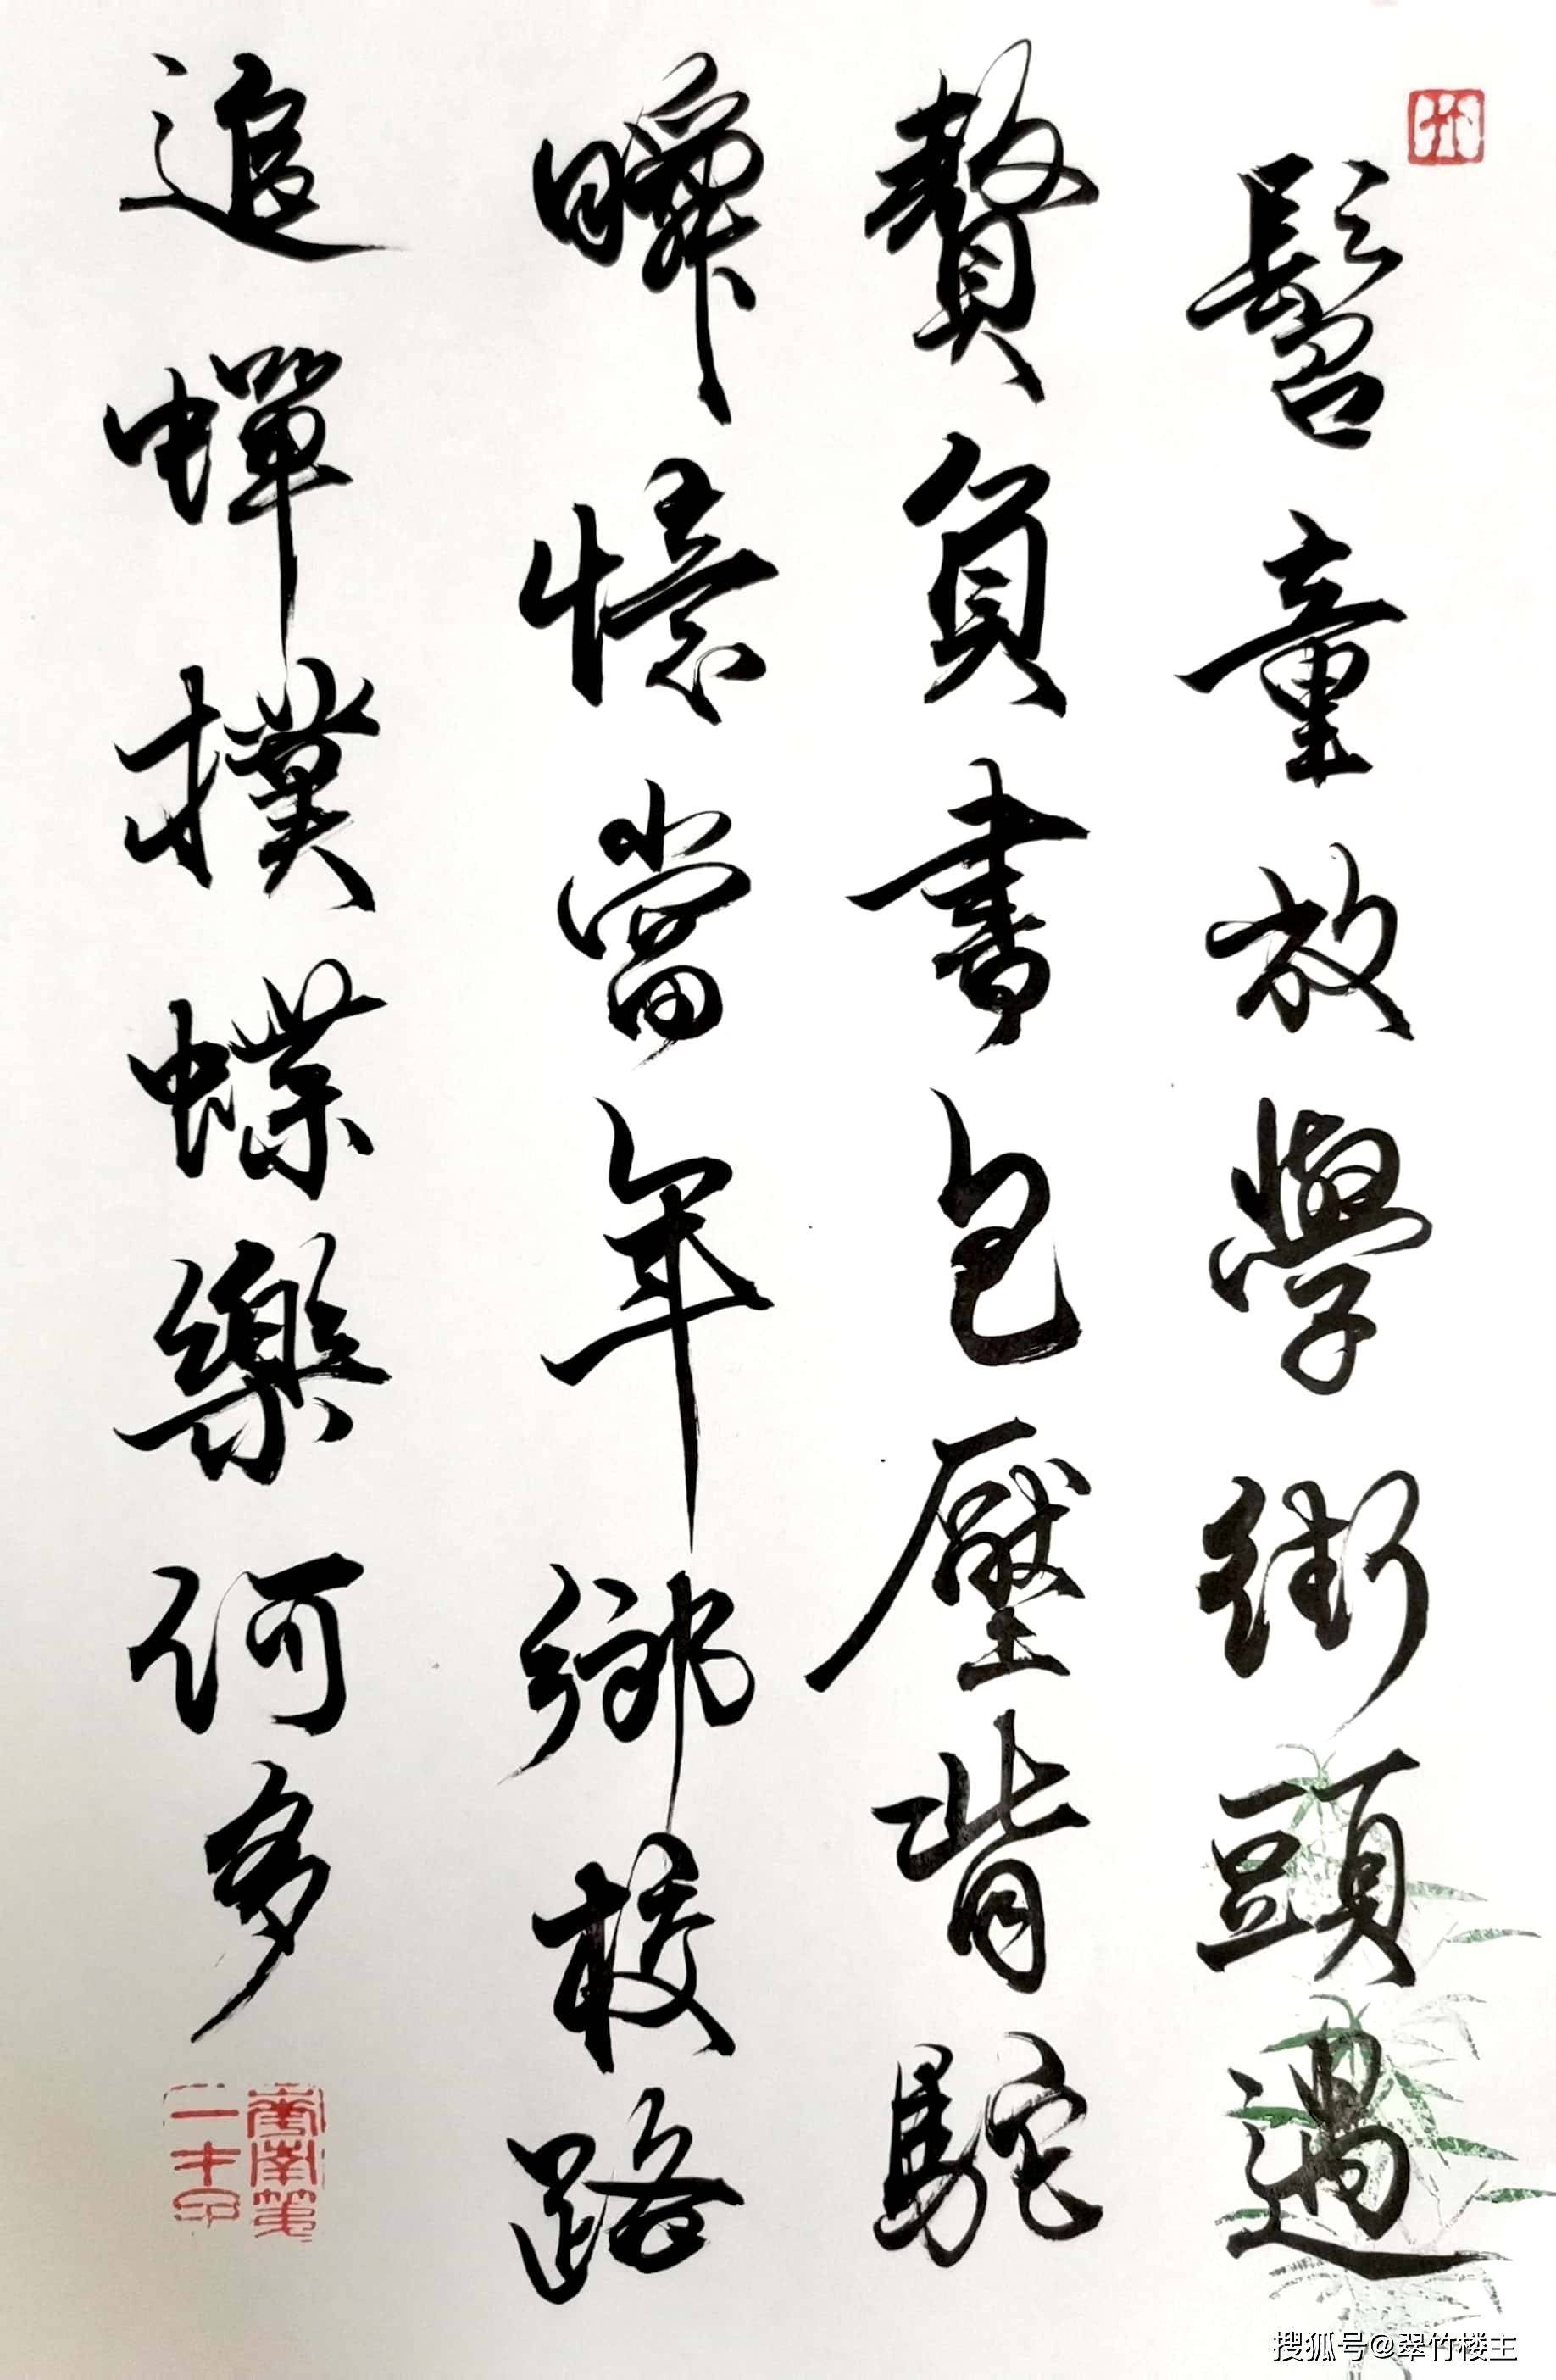 髫童放學街頭過
贅負書包壓背駝
瞬憶當年鄉校路
追蟬撲蝶樂何多
搜狐号@翠竹楼主